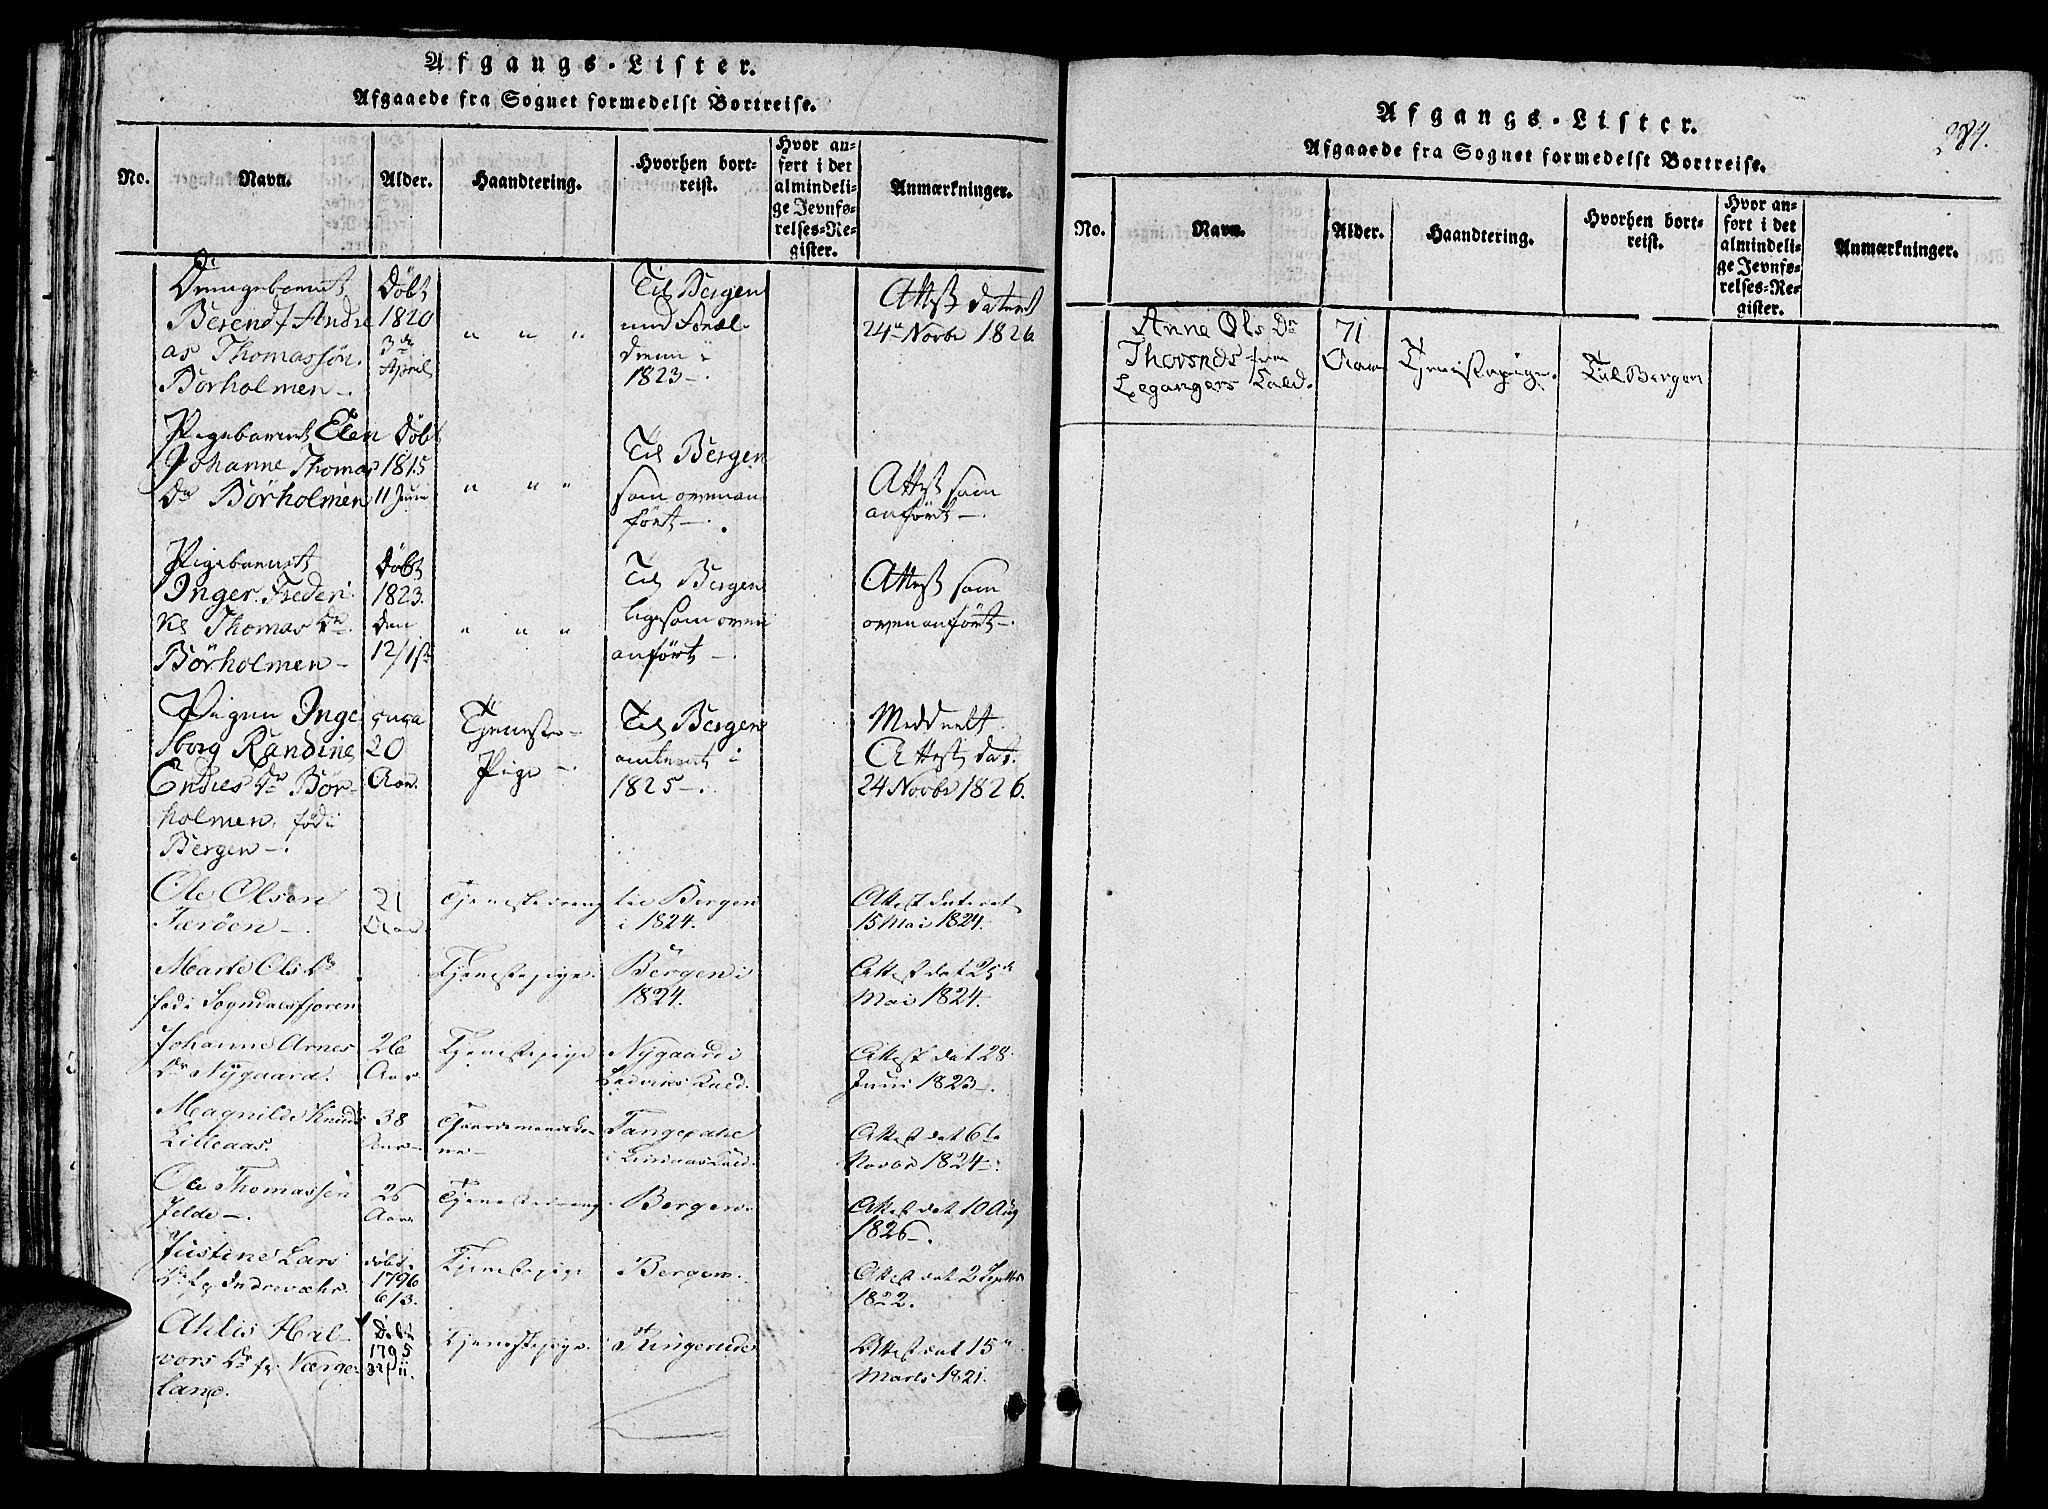 Afgangs-Lister.
Afgaaede fra Sognet formedelst Bortreise.
No.
Navn.
Alder.
Haandtering.
Hvorhen bort-
reist.
Hvor an-
ført i det
almindeli-
ge Jevnfø-
relses-Re-
gister.
Anmærkninger.
Drengebarnet
Berendt Andre
as Thomassön
Börholmen -.
Döbt
1820
3de
April
" " "
Til Bergen
med Foræl-
drene i
1823 -.
Attest dateret
24de Novbr 1826
Pigebarnet Elen
Johanne Thomas
Dr Börholmen
Döbt
1815
11 Juni
" " "
Til Bergen
som ovenan
fört -.
Attest som
anfört -.
Pigebarnet
Inger Frederi
ke Thomas Dr
Börholmen -
Döbt
1823.
den
12/1ste
" " "
Til Bergen
ligesom oven
anfört -.
Attest som
ovenanfört -.
Pigen Inge
borg Randine
Endres Dr Bör-
holmen, föd i
Bergen -.
20
Aar.
Tjeneste-
Pige -.
Til Bergen
omtrent i
1825 -.
Meddeelt
Attest dat.
24 Novbr 1826.
Ole Olsen
Færöen -.
21
Aar
Tjenestedreng
til Bergen
i 1824.
Attest dateret
15 Mai 1824.
Marte Ols Dr
föd i Sogndalsfjoren
Tjenestepige.
Bergen i
1824.
Attest dat 25de
Mai 1824.
Johanne Arnes
Dr Nygaard.
26
Aar.
Tjenestepige
Nygaard i
Ladviks Kald.
Attest dat 28
Juni 1823 -.
Magnilde Knuds
Lilleaas.
38
Aar -.
Gaardmandsko
ne -
i Kald.
Attest dat 6te
Novbr 1824 -.
Ole Thomassön
Felde -.
26
Aar.
Tjenestedreng
Bergen.
Attest dat 10 Aug
1826 -.
Justine Lars
Dr fr Indrevæhr.
döbt.
1796
6/3.
Tjenestepige
Bergen.
Attest dat 2 Septbr
1822.
Ahlis Hal-
vors Dr fr Værge-
land.
Döbt
1795
22/11.
Tjenestepige.
Ringerike
Attest dat 15de
Marts 1821.
Afgangs-Lister.
284.
Afgaaede fra Sognet formedelst Bortreise.
No.
Navn.
Alder.
Haandtering.
Hvorhen bort-
reist.
Hvor an-
ført i det
almindeli-
ge Jevnfø-
relses-Re-
gister.
Anmærkninger.
Anna Ols Dr
fra
Legangers Kald.
71
Aar
Tjenistepige.
Til Bergen